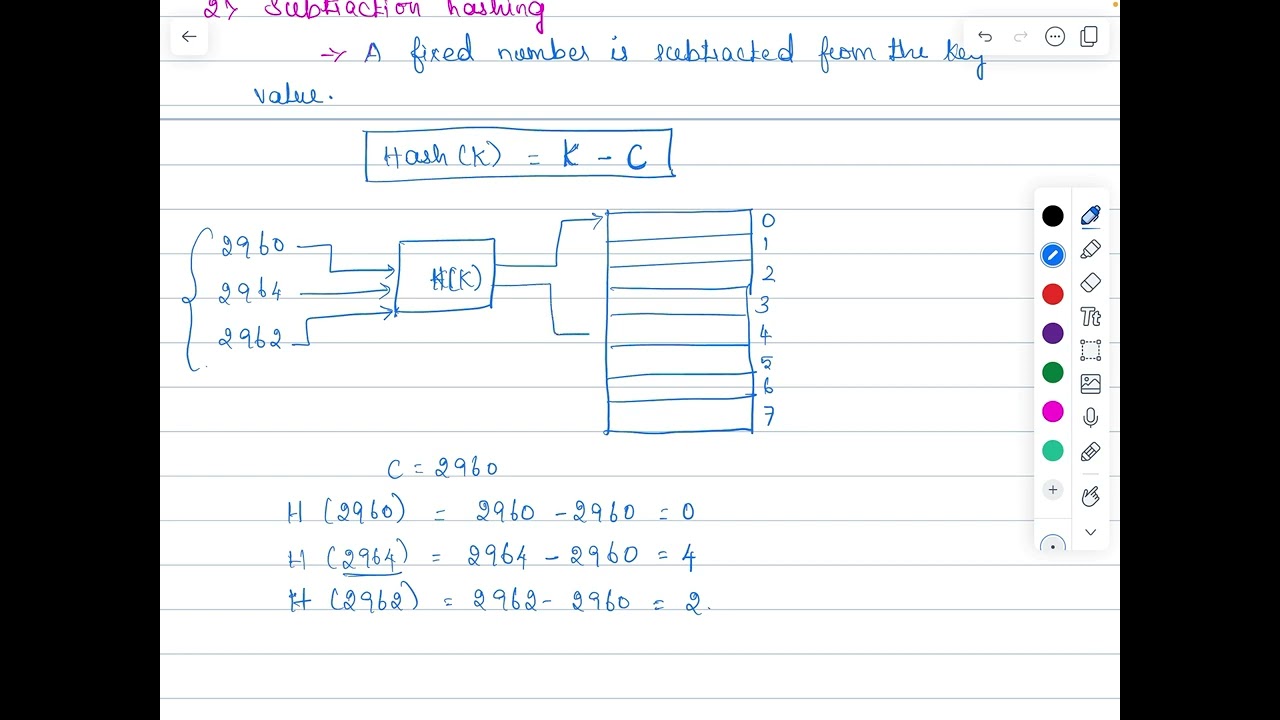 2) Subtraction hashing
→ A fixed number is subtracted from the key
value.
Hash (K) = K - C
2960
2964
2962
H(K)
0
1
2
3
4
5
6
7
C = 2960
H (2960) = 2960 - 2960 = 0
H (2964) = 2964 - 2960 = 4
H (2962) = 2962 - 2960 = 2.
Tt